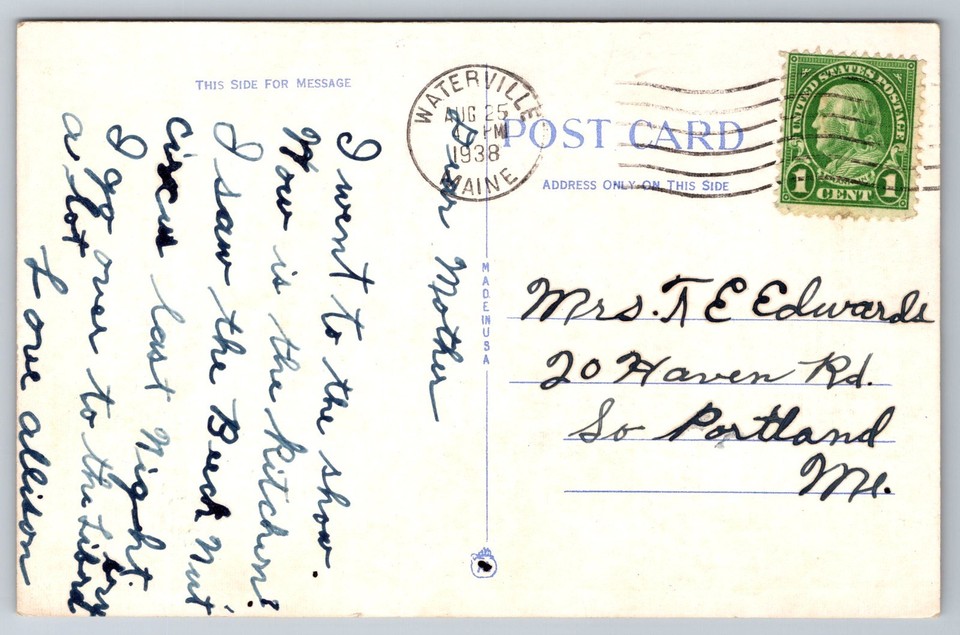 THIS SIDE FOR MESSAGE
Dear Mother
I went to the show.
How is the kitchen?
I saw the Beech Nut
Circus last Night
I go over to the Library
a lot
Love allison
WATERVILLE
AUG 25
PM
1938
MAINE
POST CARD
ADDRESS ONLY ON THIS SIDE
UNITED STATES POSTAGE
1 CENT 1
MADE IN USA
Mrs. T E Edwards
20 Haven Rd.
So Portland
Me.